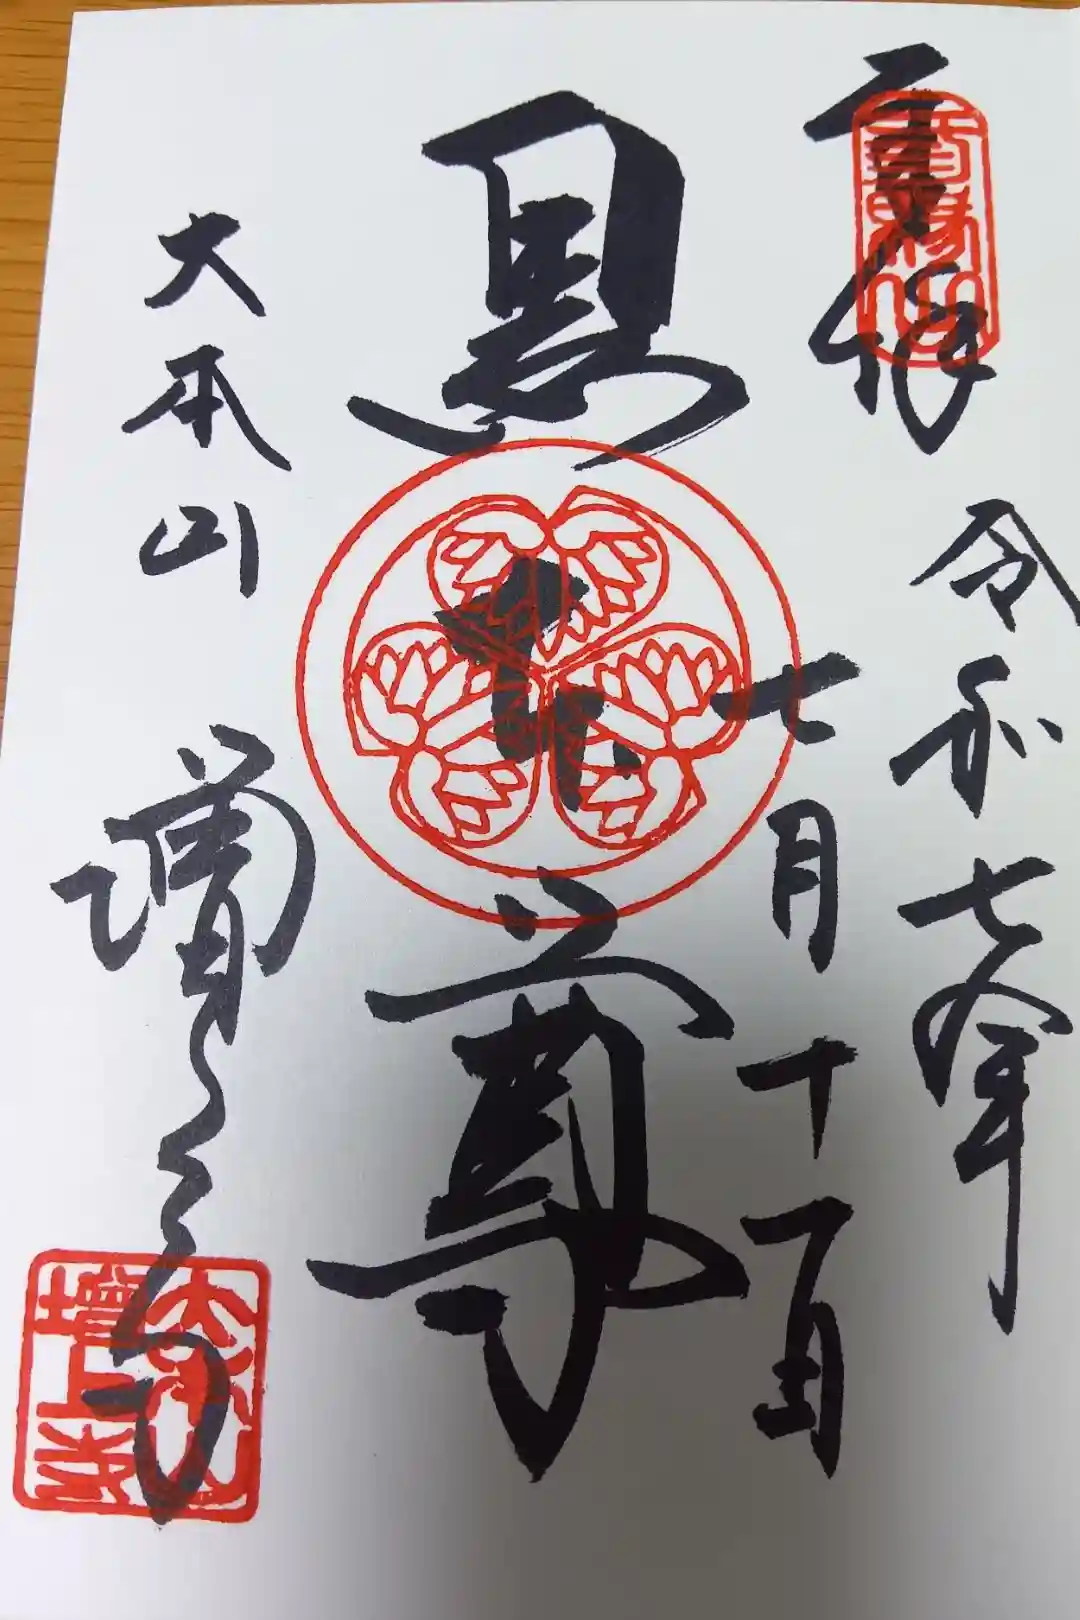 奉拝 令和七年
七月十一日
黒本尊
大本山 増上寺
大本山
増上寺